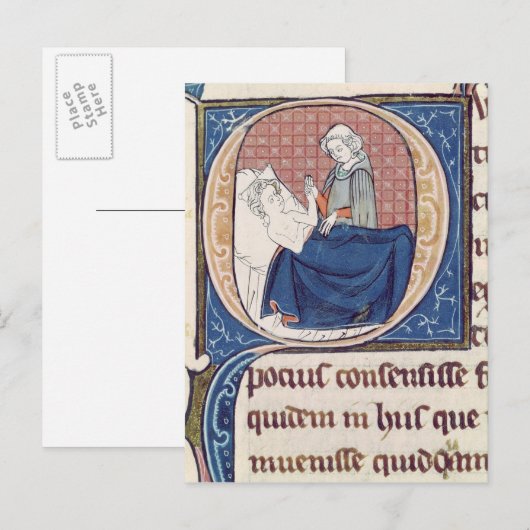 Place
Stamp
Here
pocius consensisse
quidem in huis que
inuenisse quidqam